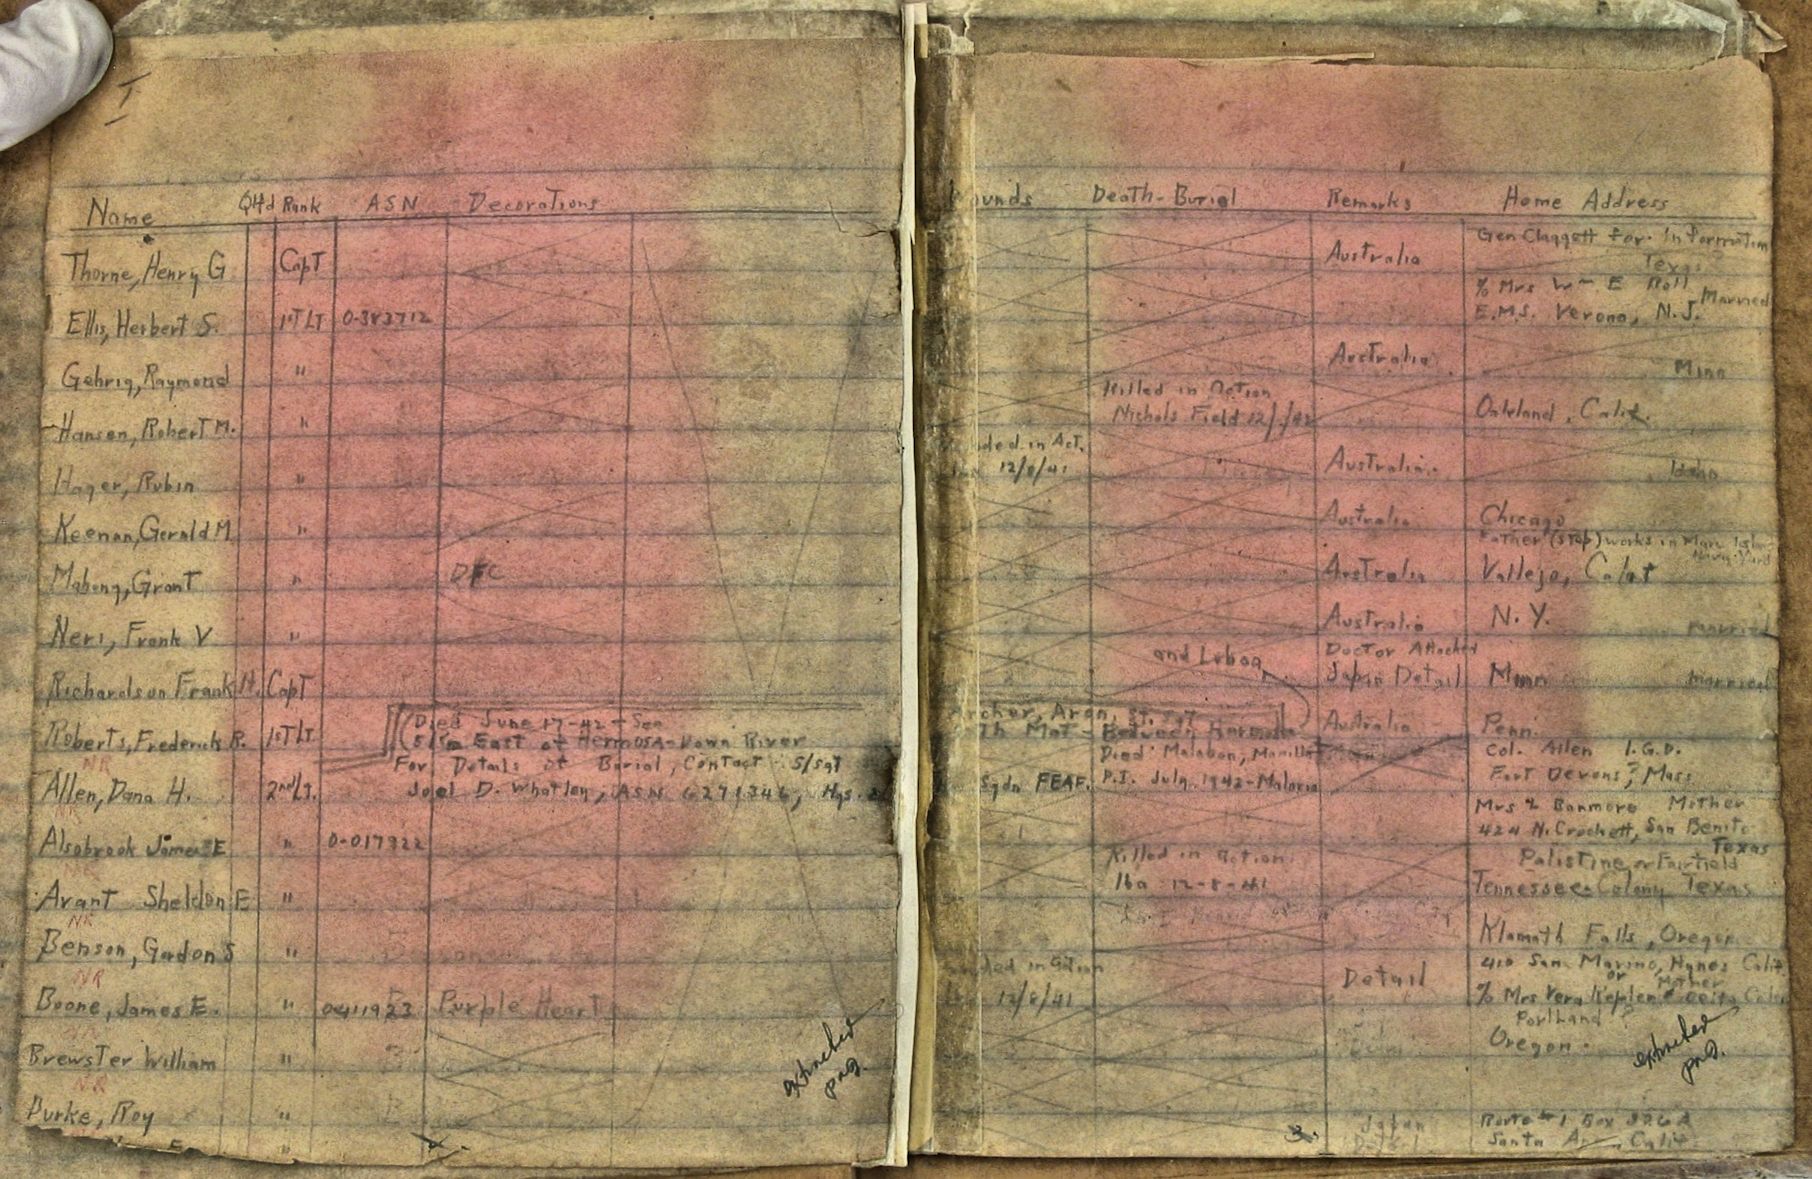 I
Name Qtd Rank ASN Decorations
Thorne, Henry G Capt
Ellis, Herbert S. 1st Lt 0-383712
Gehrig, Raymond "
Hansen, Robert M. "
Hager, Rubin "
Keenan, Gerald M "
Mahony, Grant " DFC
Neri, Frank V "
Richardson Frank H. Capt
Roberts, Frederick R. 1st Lt.
(Died June 17-42 - See
East of Hermosa - Down River
For Details of Burial, Contact S/Sgt
NR
Allen, Dana H. 2nd Lt. Joel D. Whatley, ASN 6271346, Hqs.
NR
Alsobrook James E " 0-017322
NR
Avant Sheldon E "
NR
Benson, Gordon S "
NR
Boone, James E. " 0411923 Purple Heart
Brewster William "
NR
Burke, Roy "
"
extracted
png.
2.
ounds Death - Burial Remarks Home Address
Gen Claggett for information
Australia Texas
% Mrs Wm. E Roll Married
E.M.S. Verona, N.J.
Australia Minn
Killed in Action
Nichols Field 12/ /42 Oakland, Calif.
ded in Act.
12/8/41 Australia Idaho
Australia Chicago
Father (step) works in Mare Island
Navy Yard
Australia Vallejo, Calif
Australia N.Y. Married
Doctor Attached
and Luboa Japan Detail Minn Married
Archer, Aron, St. Sgt
Australia Penn.
Mat - Between Hermosa
Died Malabon, Manilla Col. Allen I.G.D.
Sqdn FEAF. P.I. July 1942 - Malaria Fort Devons? Mass
Mrs % Banmore Mother
424 N. Crockett, San Benito
Texas
Killed in action Palistine or Fairfield
Iba - 12-8-41 Tennessee Colony Texas
Klamath Falls, Oregon
ded in action 410 San Marino, Hynes Calif
or Mother
12/8/41 Detail % Mrs Vera Keplen
Portland?
Oregon.
extracted
png.
Japan Route #1 Box 326A
Santa Calif
3.